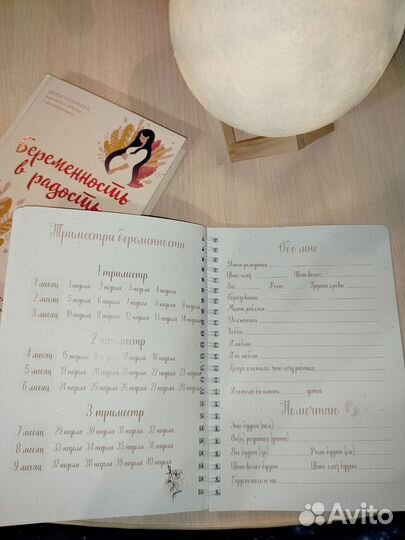 Беременность
в радость
Триместры беременности
1 триместр
1 месяц 1 неделя 2 неделя 3 неделя 4 неделя
2 месяц 5 неделя 6 неделя 7 неделя 8 неделя 9 неделя
3 месяц 10 неделя 11 неделя 12 неделя 13 неделя 14 неделя
2 триместр
4 месяц 15 неделя 16 неделя 17 неделя 18 неделя
5 месяц 19 неделя 20 неделя 21 неделя 22 неделя 23 неделя
6 месяц 24 неделя 25 неделя 26 неделя 27 неделя 28 неделя
3 триместр
7 месяц 29 неделя 30 неделя 31 неделя 32 неделя
8 месяц 33 неделя 34 неделя 35 неделя 36 неделя
9 месяц 37 неделя 38 неделя 39 неделя 40 неделя
Обо мне
Дата рождения
Цвет глаз Цвет волос
Вес Рост Группа крови
Образование
Место работы
Должность
Хобби
Я люблю
Я не люблю
Когда я узнала, что жду ребенка
Я хотела бы иметь детей
Помечтаю
Это будет (пол)
Он(а) родится (дата)
Вес будет (кг) Рост будет (см)
Цвет волос будет Цвет глаз будет
Будет похож на
Avito